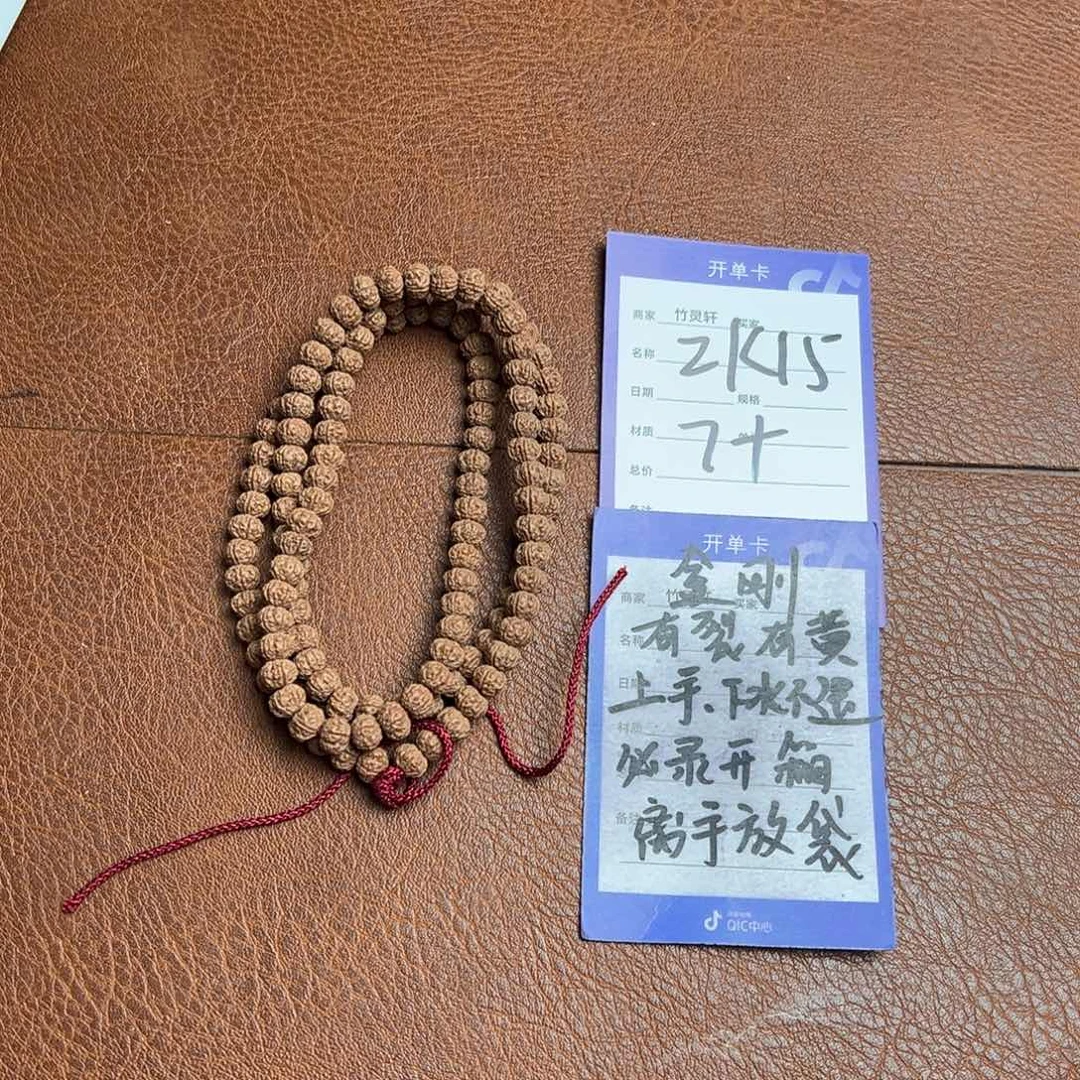 开单卡
商家 竹灵轩 买家
名称 ZK15
日期 规格
材质 7十
总价
备注
开单卡
金刚
商家 竹 买家
有裂有黄
名称
上手、下水不退
日期
材质
必录开箱
备注
离手放袋
QIC中心